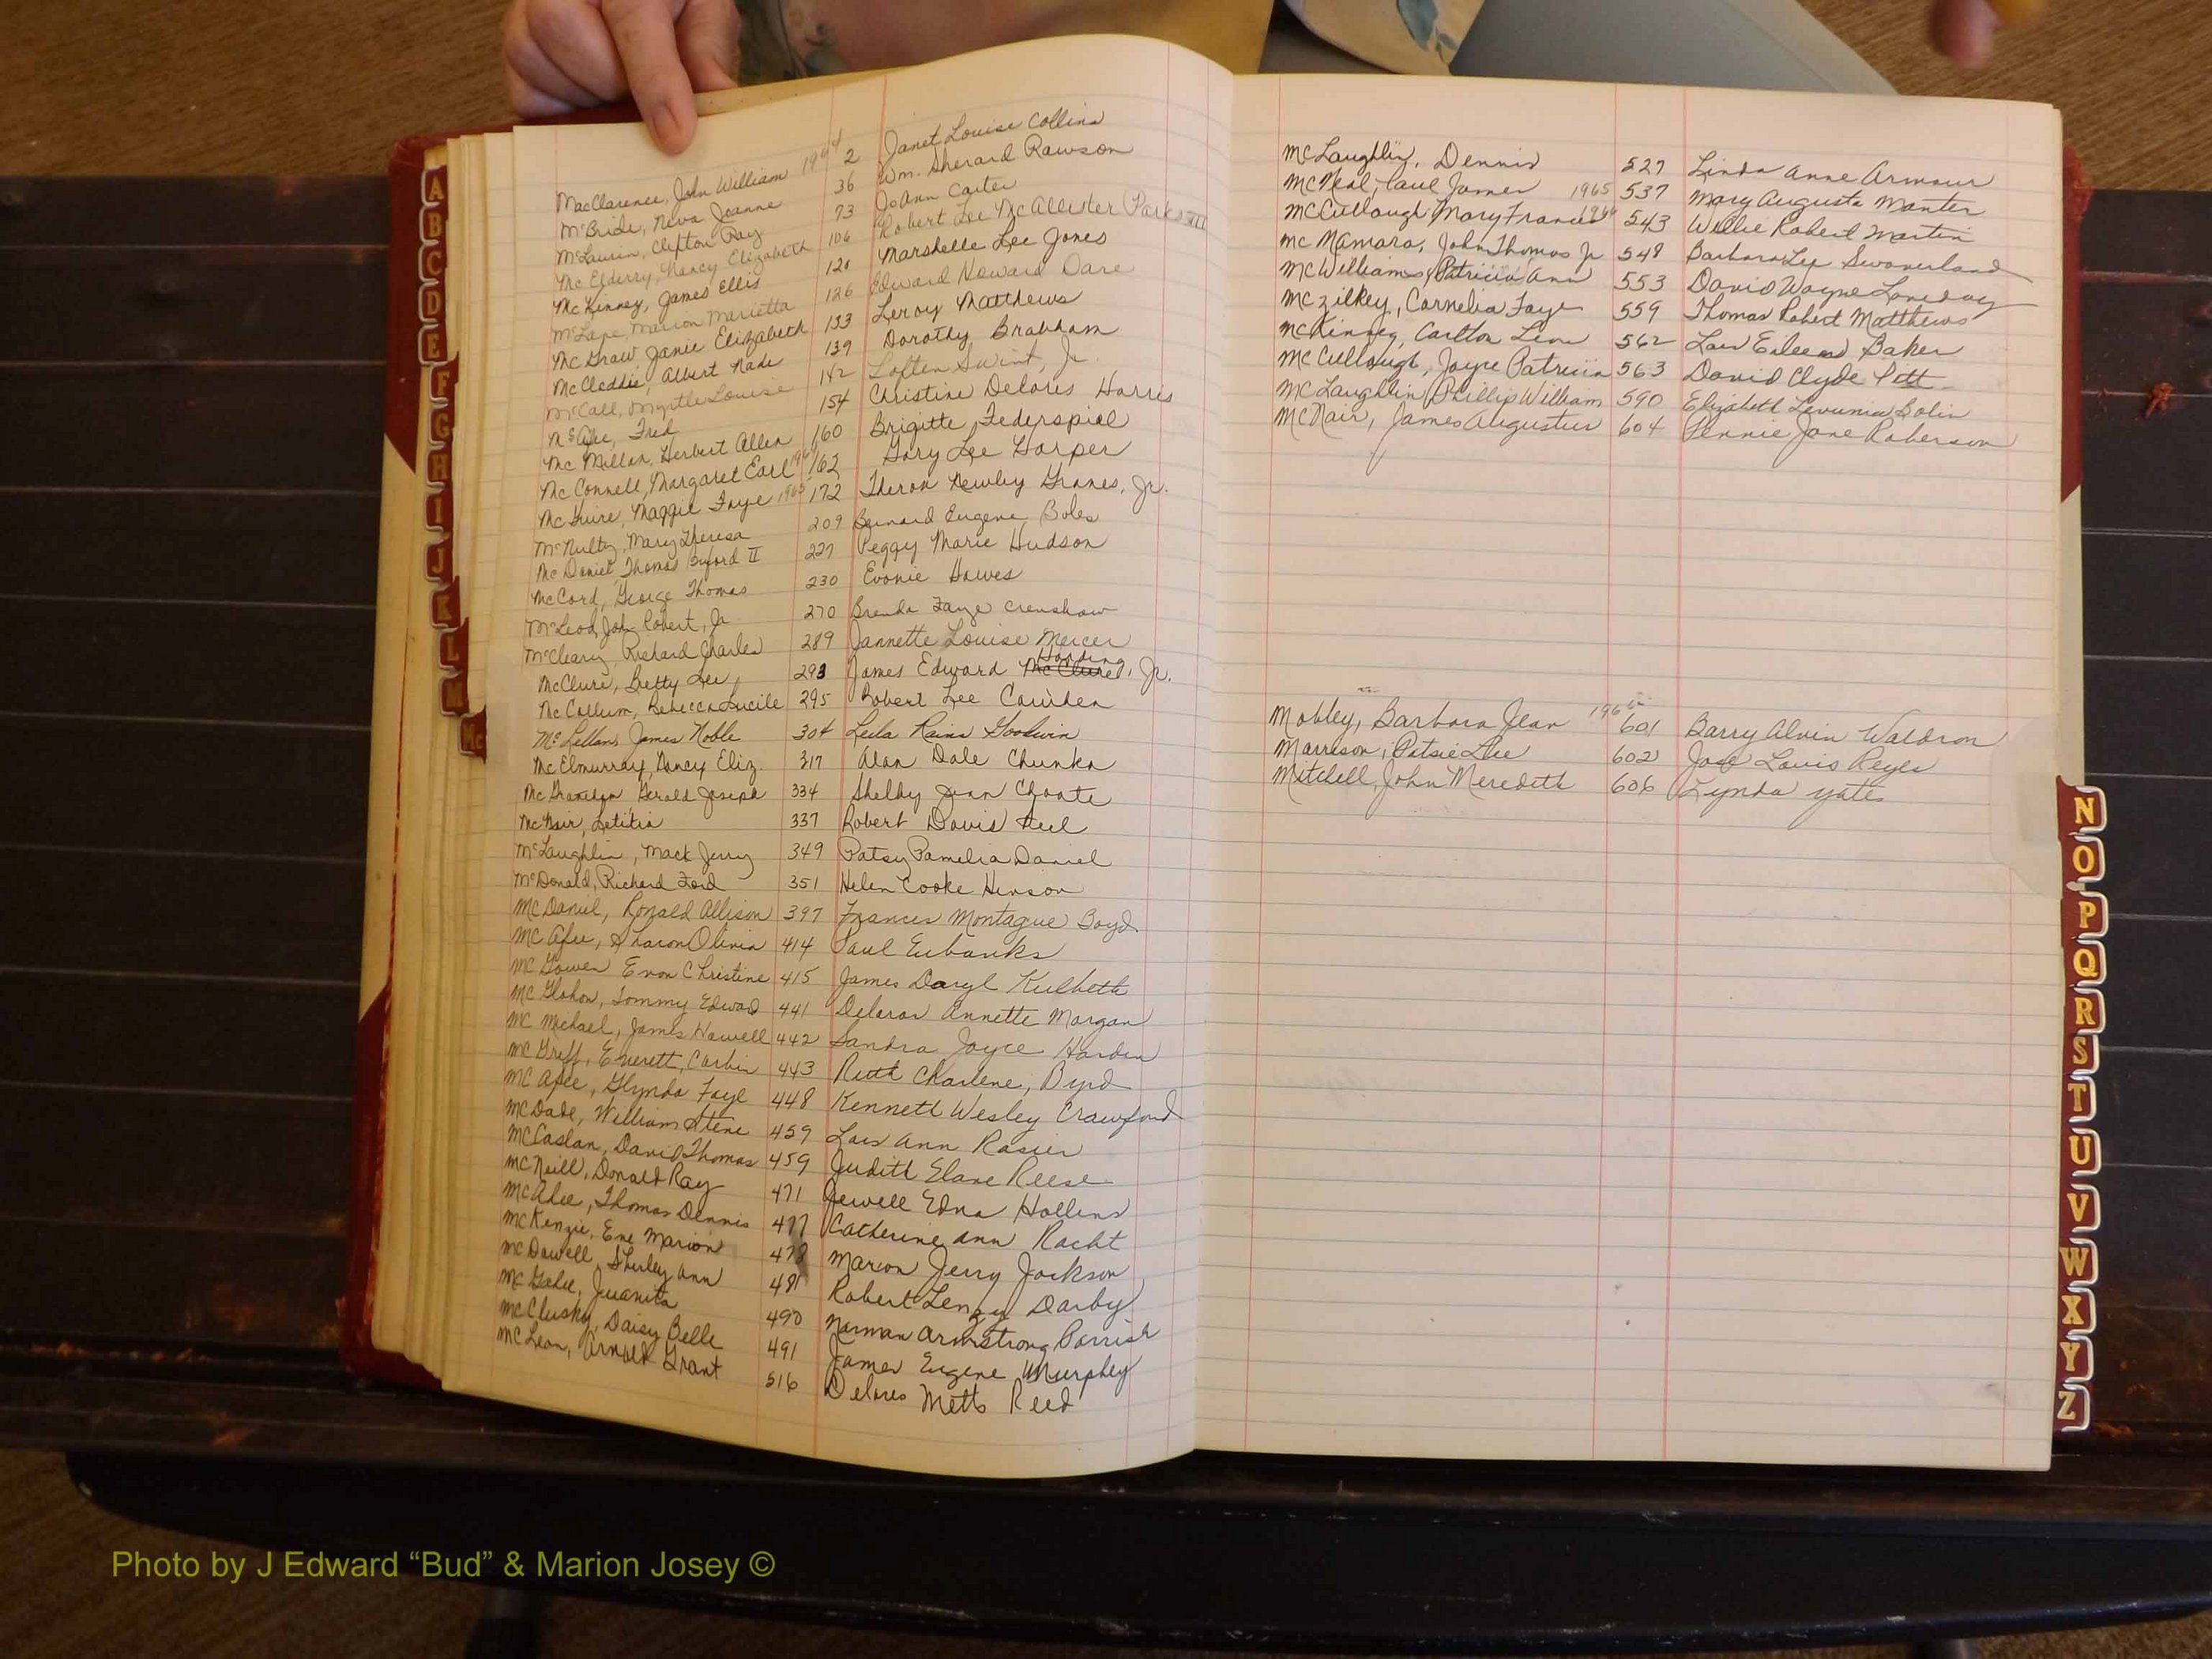 MacClarence, John William 1964 2 Janet Louise Collins
McBride, Neva Joanne 36 Wm. Sherard Rawson
McLaurin, Clifton Ray 73 JoAnn Carter
McElderry, Nancy Elizabeth 106 Robert Lee McAllister Parks III
McKinney, James Ellis 120 Marshelle Lee Jones
McLane, Marion Marietta 126 Edward Howard Dare
McGraw, Janie Elizabeth 133 Leroy Matthews
McCladdie, Albert Nade 139 Dorothy Brabham
McCall, Myrtle Louise 142 Loften Swint, Jr.
McAfee, Fred 154 Christine Delores Harris
McMillan, Herbert Allen 160 Brigitte Federspiel
McConnell, Margaret Earl 162 Gary Lee Harper
McGuire, Maggie Faye 1965 172 Theron Newley Graves, Jr.
McNulty, Mary Theresa 209 Bernard Eugene Boles
McDaniel Thomas II 227 Peggy Marie Hudson
McCord, George Thomas 230 Evonie Hawes
McLeod, John Robert, Jr 270 Brenda Faye Crenshaw
McCleary, Richard Charles 289 Jannette Louise Mercer
McClure, Betty Lee, 293 James Edward McClure Harding, Jr.
McCollum, Rebecca Lucile 295 Robert Lee Cowden
McLellan, James Noble 304 Leila Rains Goodwin
McElmurray, Nancy Eliz. 317 Alan Dale Chunka
Gerald Joseph 334 Shelby Jean Choate
McNair, Letitia 337 Robert Davis
McLaughlin, Mack Jerry 349 Patsy Pamelia Daniel
McDonald, Richard Ford 351 Helen Cooke Henson
McDaniel, Ronald Allison 397 Frances Montague Boyd
McAfee, Sharon Olivia 414 Paul Eubanks
McGowen Evon Christine 415 James Daryl Kulbeth
McGlohon, Tommy Edward 441 Deloras Annette Morgan
McMichael, James Howell 442 Sandra Joyce Harden
McGreff, Everett Corbin 443 Ruth Charlene, Byrd
McAfee, Glynda Faye 448 Kennett Wesley Crawford
McDade, William Stene 459 Lois Ann Rosier
McCaslan, David Thomas 459 Judith Elane Reese
McNeill, Donald Ray 471 Jewell Edna Hollens
McAdee, Thomas Dennis 477 Catherine Ann Racht
McKenzie, Eve Marion 478 Marion Jerry Jackson
McDowell, Shirley Ann 481 Robert Darby
McGahee, Juanita 490 Norman Armstrong Parrish
McClusky, Daisy Belle 491 James Eugene Murphey
McLean, Arnold Grant 516 Delores Metts Reed
McLaughlin, Dennis 527 Linda Anne Armour
McNeal, Paul James 1965 537 Mary Augusta Manter
McCullough, Mary Frances 543 Willie Robert Martin
McNamara, John Thomas Jr 548 Barbara
McWilliams, Patricia Ann 553 David Wayne Loveday
Cornelia Faye 559 Thomas Robert Matthews
McKinney, Carlton Leon 562 Lois Eileen Baker
McCullough, Joyce Patricia 563 David Clyde Pitt
McLaughlin Phillip William 590 Elizabeth Bolin
McNair, James Augustus 604 Jane Roberson
Mobley, Barbara Jean 601 Barry Alvin Waldron
Morrison, Patsie Lee 602 Jose Louis Reyes
Mitchell, John Meredith 606 Lynda Yates
A
B
C
D
E
F
G
H
I
J
K
L
M
Mc
N
O
P
Q
R
S
T
U
V
W
X
Y
Z
Photo by J Edward “Bud” & Marion Josey ©